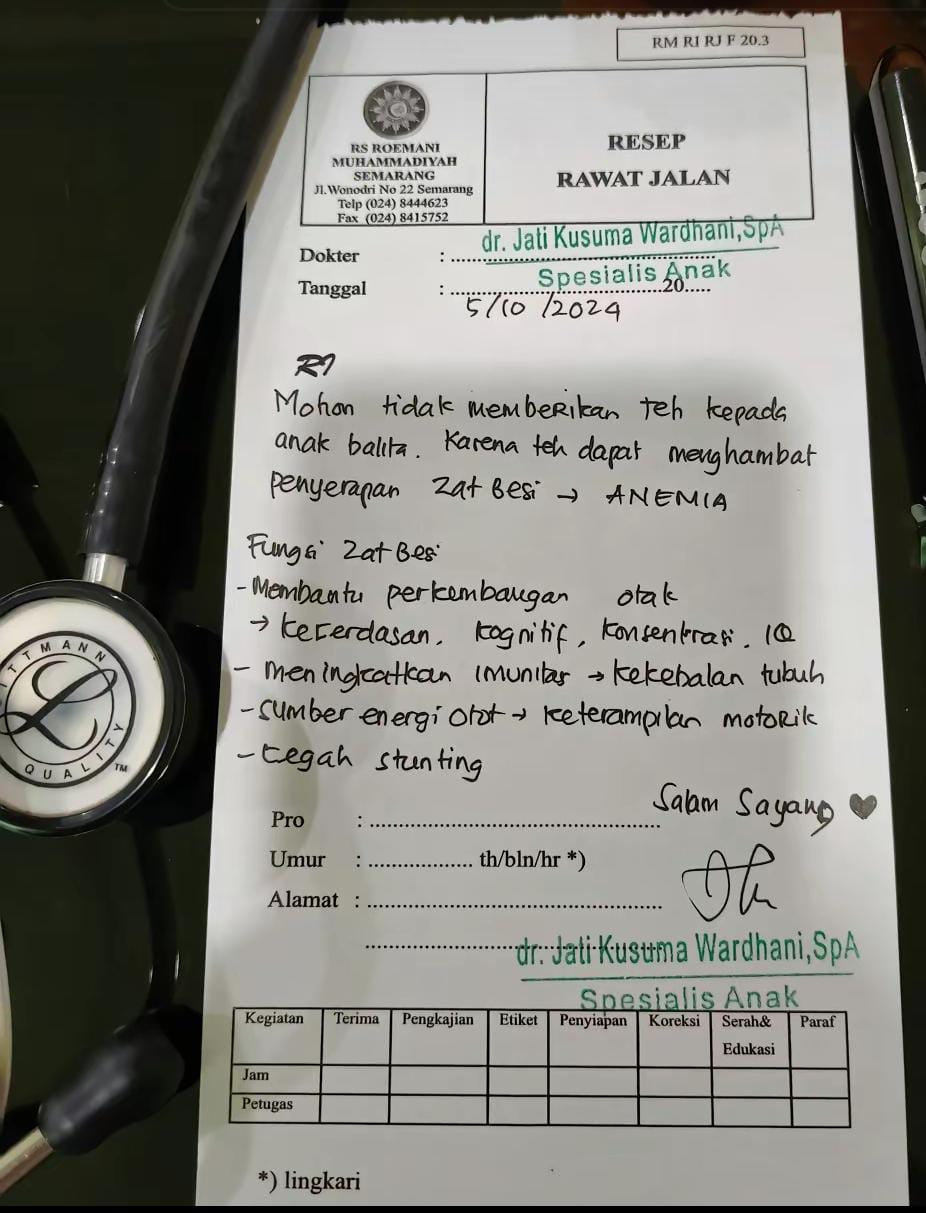 RM RI RJ F 20.3
RS ROEMANI
MUHAMMADIYAH
SEMARANG
Jl.Wonodri No 22 Semarang
Telp (024) 8444623
Fax (024) 8415752
RESEP
RAWAT JALAN
Dokter : dr. Jati Kusuma Wardhani,SpA
Spesialis Anak
Tanggal : ..........20.....
5/10/2024
R/
Mohon tidak memberikan teh kepada
anak balita. Karena teh dapat menghambat
penyerapan zat Besi → ANEMIA
Fungsi Zat Besi
- Membantu perkembangan otak
→ kecerdasan, kognitif, konsentrasi, IQ
- meningkatkan imunitas → kekebalan tubuh
- Sumber energi otot → keterampilan motorik
- cegah stunting
Salam Sayang ♥
Pro : ..........
Umur : .......... th/bln/hr *)
Alamat : ..........
dr. Jati Kusuma Wardhani,SpA
Spesialis Anak
Kegiatan Terima Pengkajian Etiket Penyiapan Koreksi Serah& Edukasi Paraf
Jam
Petugas
*) lingkari
LITTMANN
QUALITY TM